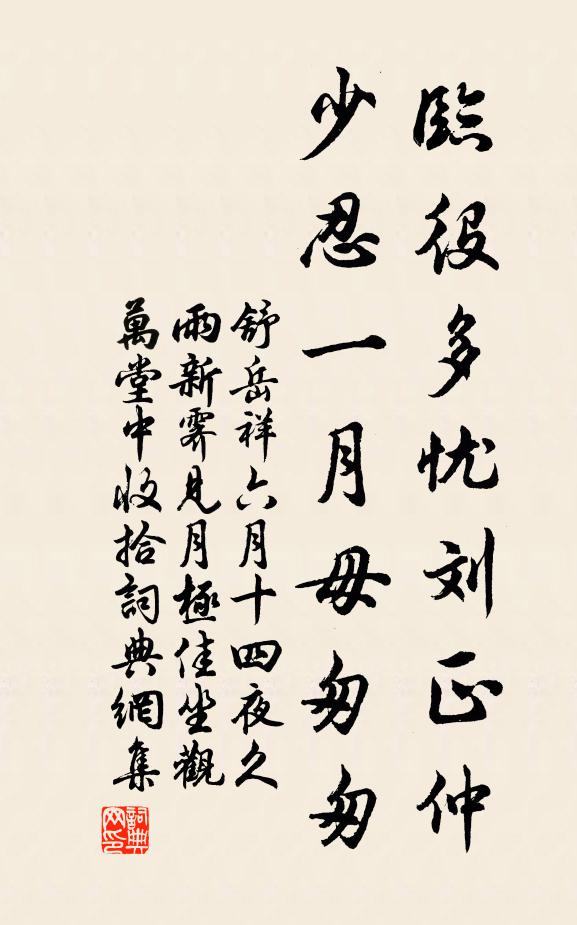 臨役多忧刘正仲
少忍一月毋匆匆
舒岳祥六月十四夜久
雨新霽見月極佳坐觀
萬堂中收拾詞典網集
詞典网印